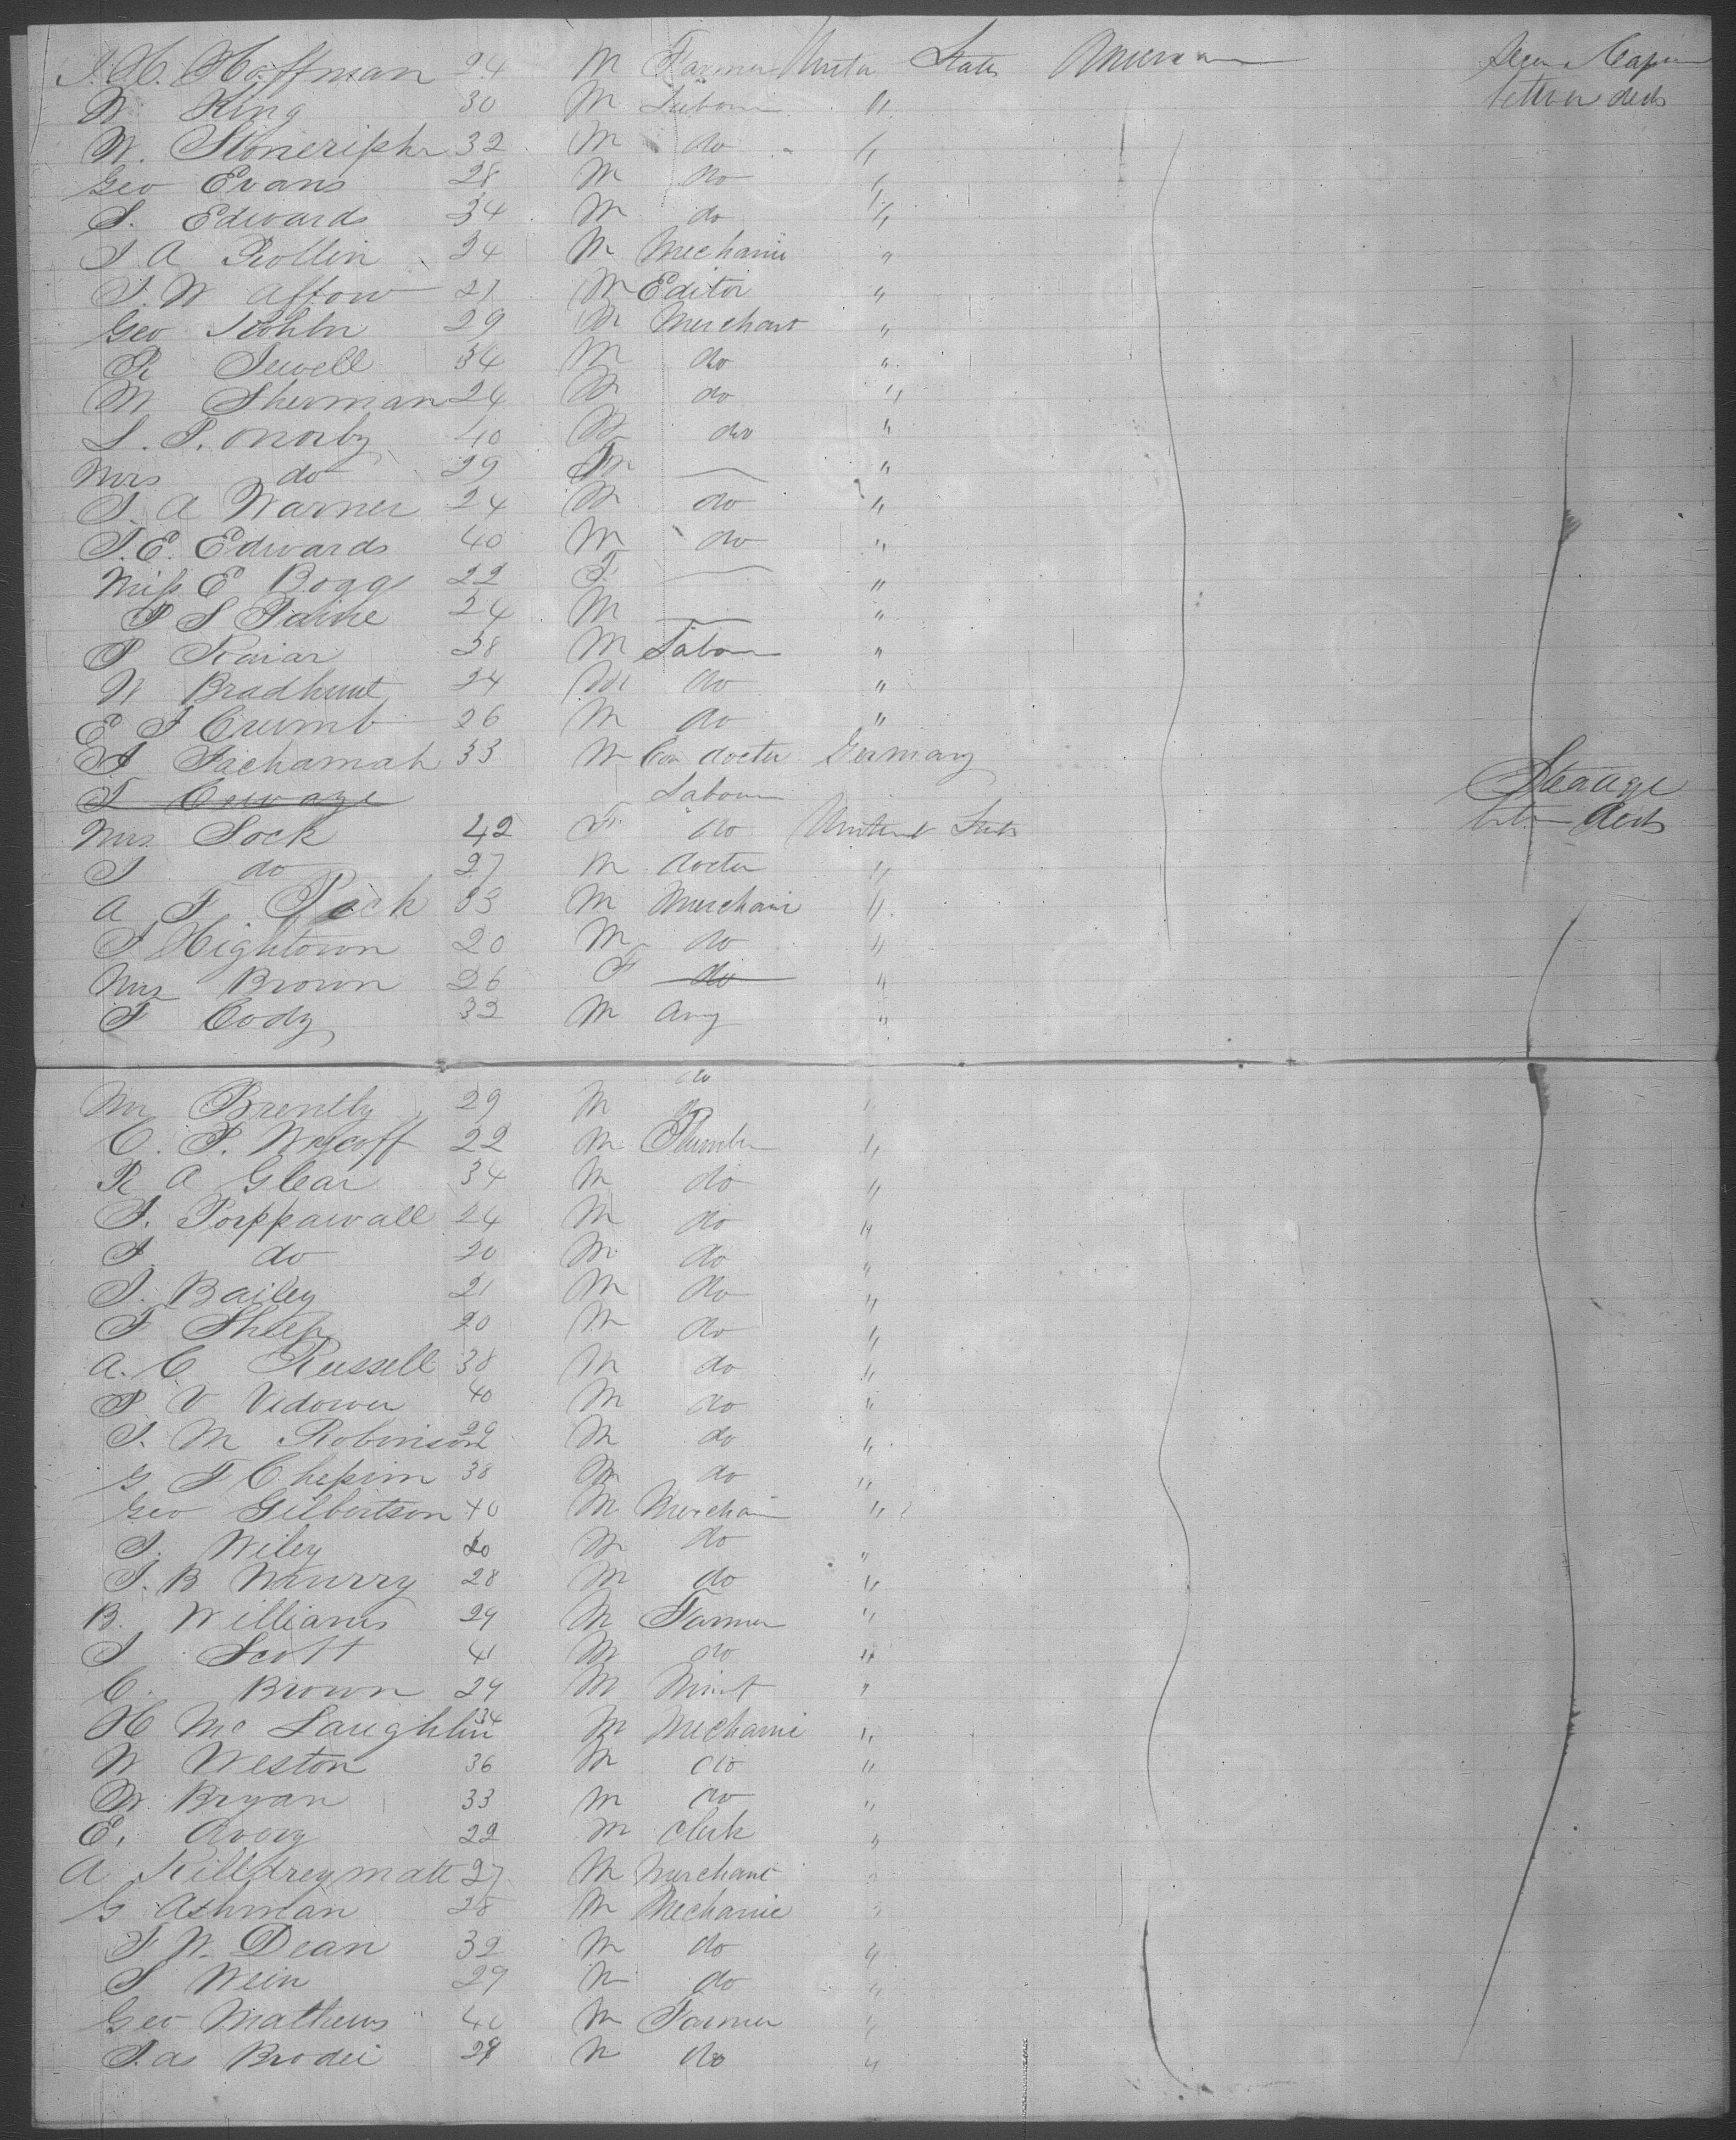 J. H. Hoffman 24 M Farmer Unite States American Secon Cabin
W. King 30 M Labour " between decks
W. Stoneriphr 32 M do "
Geo Evans 28 M do "
S. Edwards 34 M do "
J A Rollin 24 M Mechanic "
J. W Affow 27 M Editor "
Geo Kohln 29 M Merchant "
R Jewell 34 M do "
M Sherman 24 M do "
L. P. Mosby 40 M do "
Mrs do 29 F — "
J. A Warner 24 M do "
J. E. Edwards 40 M do "
Miss E Boggs 22 F — "
P S Paine 24 M — "
P Kaiar 38 M Labour "
W Bradhunt 24 M do "
E J Crumb 26 M do "
E J Tachamah 33 M Con docter Germany
Labour Steauge
Mrs Sock 42 F do United Stats betn decks
J do 27 M docter "
A J Pick 33 M Merchan "
J Hightown 20 M do "
Mrs Brown 26 F do "
F Cody 32 M Any "
do
Mr Brently 29 M "
C. P. Wycoff 22 M Plumber "
R A Glear 34 M do "
J. Porppawall 24 M do "
J do 20 M do "
J. Bailey 21 M do "
F Sheep 20 M do "
A. C Russell 38 M do "
P V Vidower 40 M do "
J. M Robinson 29 M do "
G F Chepim 38 M do "
Geo Gilbertson 40 M Merchan "
J. Wiley 20 M do "
J. B Murry 28 M do "
B. Williams 29 M Farmer "
J Scott 41 M do "
C. Brown 24 M "
H McLaughlin 34 M Mechanic "
W Weston 36 M do "
W. Bryan 33 M do "
E. Avory 22 M Clerk "
A Killdreymatt 27 M Merchant "
G Ashman 28 M Mechanic "
F W. Dean 32 M do "
J Wein 29 M do "
Geo Mathews 40 M Farmer "
Jas Brodei 29 M do "